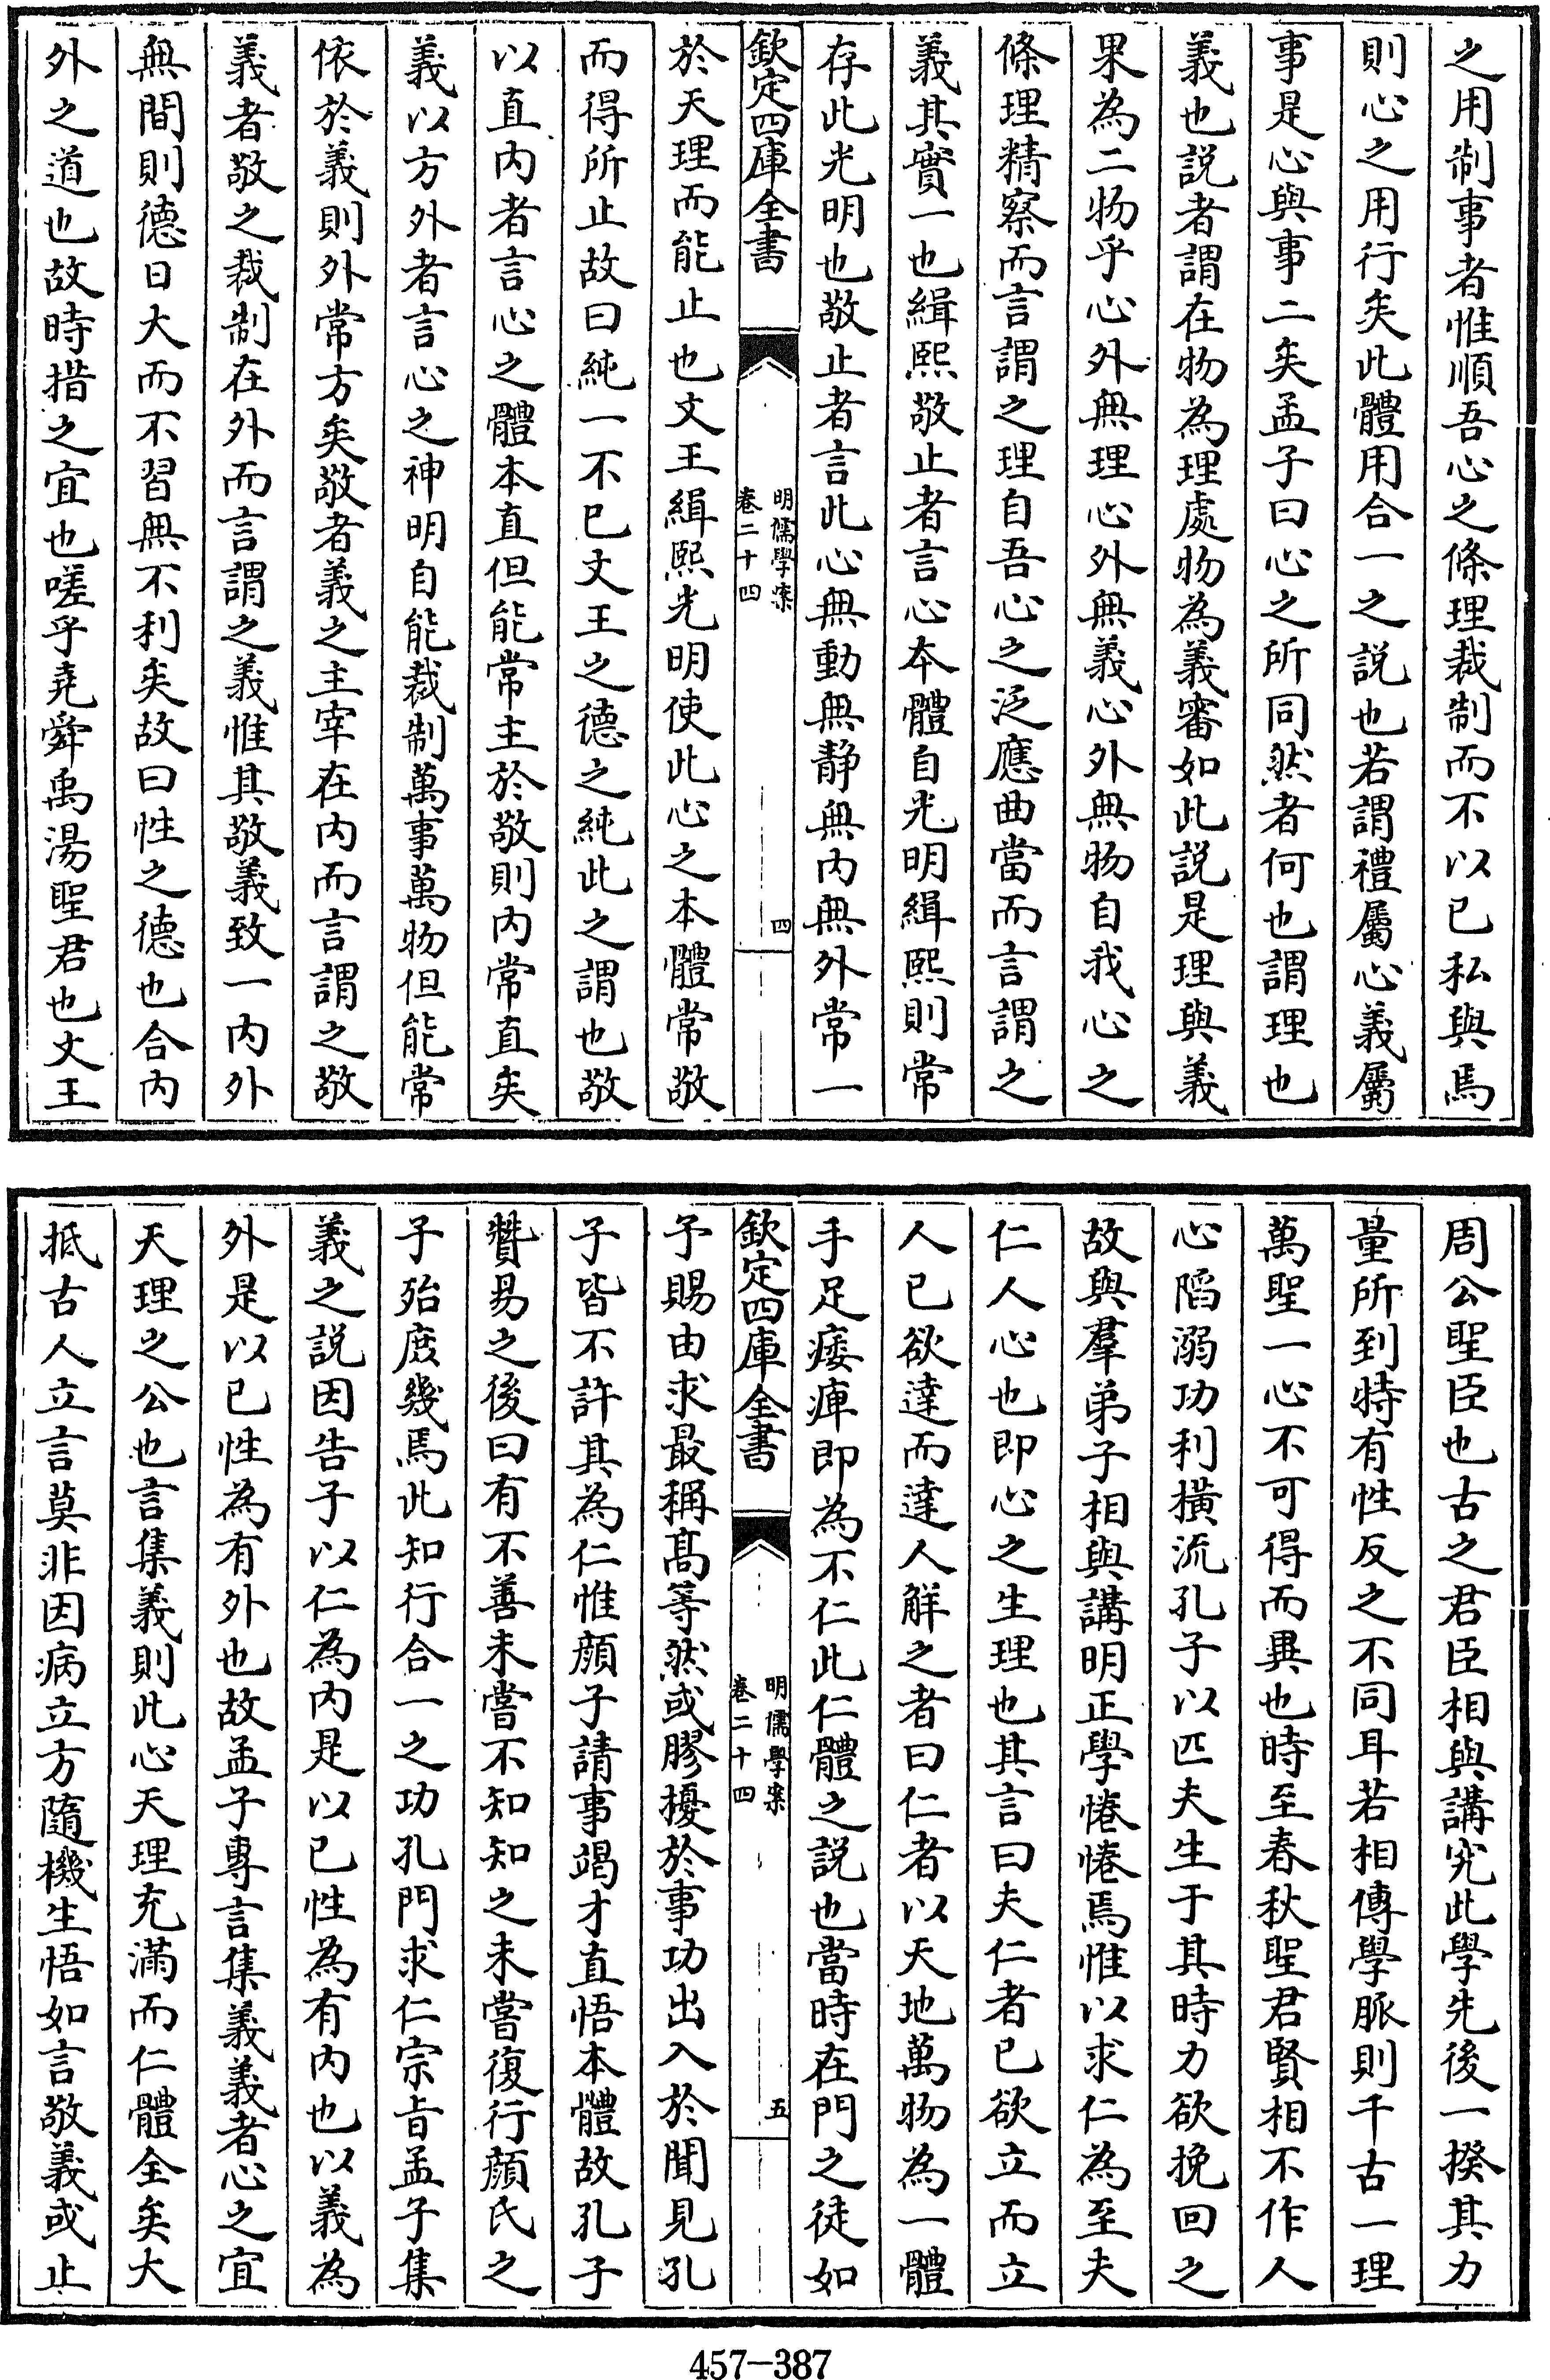 之用制事者惟順吾心之條理裁制而不以已私與焉
則心之用行矣此體用合一之説也若謂禮屬心義屬
事是心與事二矣孟子曰心之所同然者何也謂理也
義也説者謂在物為理處物為義審如此説是理與義
果為二物乎心外無理心外無義心外無物自我心之
條理精察而言謂之理自吾心之泛應曲當而言謂之
義其實一也緝熙敬止者言心本體自光明緝熙則常
存此光明也敬止者言此心無動無静無内無外常一
欽定四庫全書
明儒學案
卷二十四
四
於天理而能止也文王緝熙光明使此心之本體常敬
而得所止故曰純一不已文王之德之純此之謂也敬
以直内者言心之體本直但能常主於敬則内常直矣
義以方外者言心之神明自能裁制萬事萬物但能常
依於義則外常方矣敬者義之主宰在内而言謂之敬
義者敬之裁制在外而言謂之義惟其敬義致一内外
無間則德日大而不習無不利矣故曰性之德也合内
外之道也故時措之宜也嗟乎堯舜禹湯聖君也文王
周公聖臣也古之君臣相與講究此學先後一揆其力
量所到特有性反之不同耳若相傳學脈則千古一理
萬聖一心不可得而異也時至春秋聖君賢相不作人
心陷溺功利橫流孔子以匹夫生于其時力欲挽回之
故與羣弟子相與講明正學惓惓焉惟以求仁為至夫
仁人心也即心之生理也其言曰夫仁者已欲立而立
人已欲達而達人解之者曰仁者以天地萬物為一體
手足痿痺即為不仁此仁體之説也當時在門之徒如
欽定四庫全書
明儒學案
卷二十四
五
予賜由求最稱髙等然或膠擾於事功出入於聞見孔
子皆不許其為仁惟顔子請事竭才直悟本體故孔子
贊易之後曰有不善未嘗不知知之未嘗復行顔氏之
子殆庶幾焉此知行合一之功孔門求仁宗㫖孟子集
義之説因告子以仁為内是以已性為有内也以義為
外是以已性為有外也故孟子專言集義義者心之宜
天理之公也言集義則此心天理充滿而仁體全矣大
抵古人立言莫非因病立方隨機生悟如言敬義或止
457-387